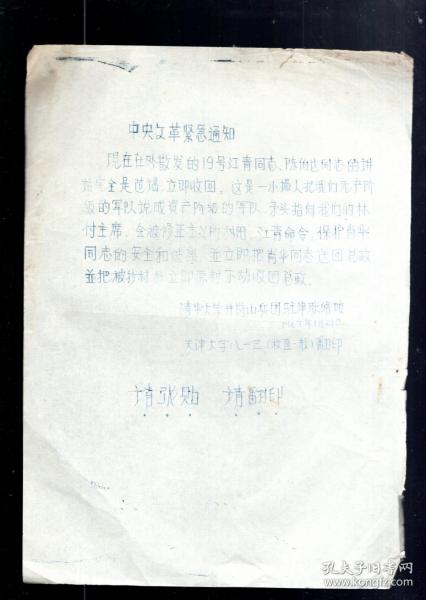 中央文革緊急通知
现在在外散发的19号江青同志、陈伯达同志的讲
话完全是造谣,立即收回。这是一小撮人把我们无产阶
级的军队说成資产阶级的军队,矛头指向我们的林
付主席,会被修正主义所利用。江青命令,保护肖华
同志的安全和健康,並立即把肖华同志送回总政
並把被抄材料立即原封不动收回总政。
清华大学井岗山兵团駐津联络站
天津大学八一三 翻印
请张贴 请翻印
孔夫子旧书网
www.kongfz.com